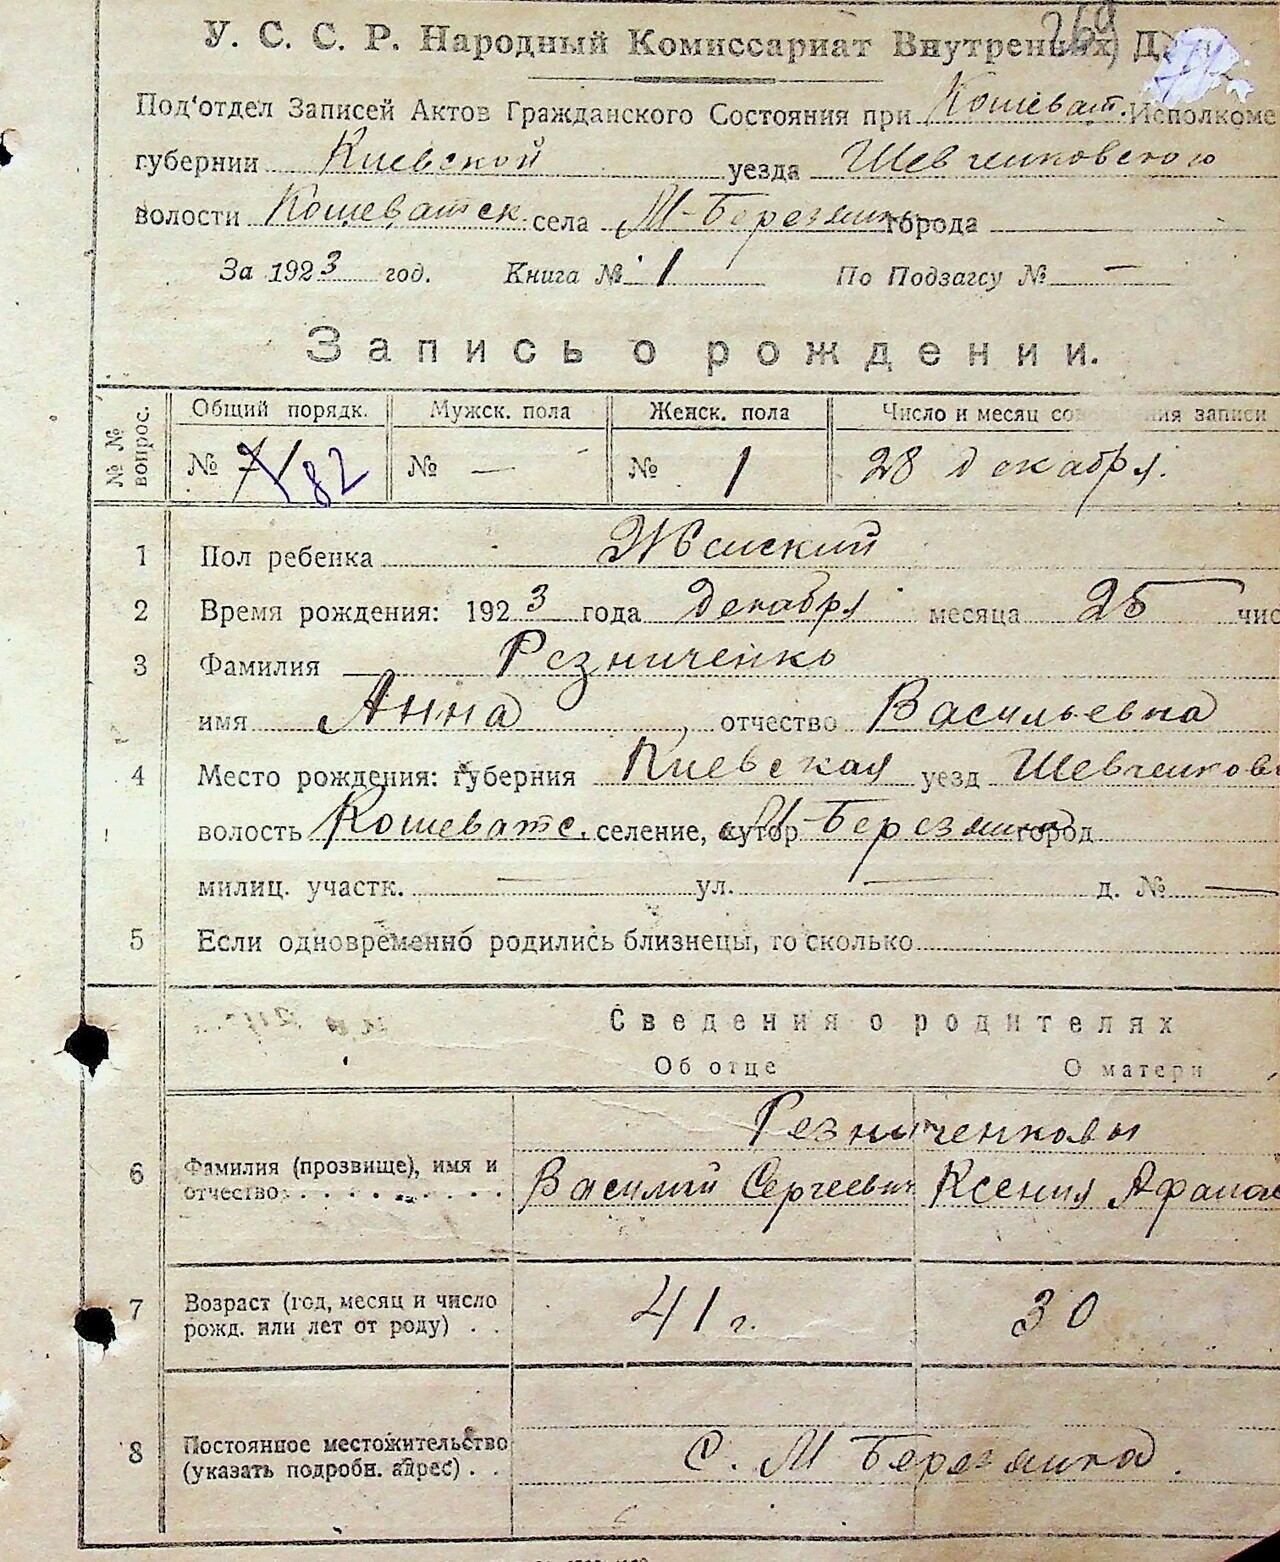 269
У. С. С. Р. Народный Комиссариат Внутренних Д
Под'отдел Записей Актов Гражданского Состояния при Кошеват. Исполкоме
губернии Киевской уезда Шевченковского
волости Кошеватск. села М-Березянка города
За 1923 год. Книга № 1 По Подзагсу № —
Запись о рождении.
№ № вопрос. Общий порядк. Мужск. пола Женск. пола Число и месяц сов ния записи
№ 82 № — № 1 28 декабря.
1 Пол ребенка Женский
2 Время рождения: 1923 года декабря месяца 25 чис
3 Фамилия Резниченко
имя Анна, отчество Васильевна
4 Место рождения: губерния Киевская уезд Шевченков
волость Кошеватс. селение, хутор М-Березянка город
милиц. участк. — ул. — д. № —
5 Если одновременно родились близнецы, то сколько
Сведения о родителях
Об отце О матери
Резниченковы
6 Фамилия (прозвище), имя и
отчество: Василий Сергеевич Ксения Афанас
7 Возраст (год, месяц и число
рожд. или лет от роду) . . 41 г. 30
8 Постоянное местожительство
(указать подробн. адрес) . . С. М Березянка.